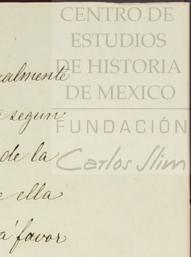 CENTRO DE
ESTUDIOS
DE HISTORIA
DE MEXICO
FUNDACIÓN
Carlos Slim
ualmente
segun
de la
e ella
a favor